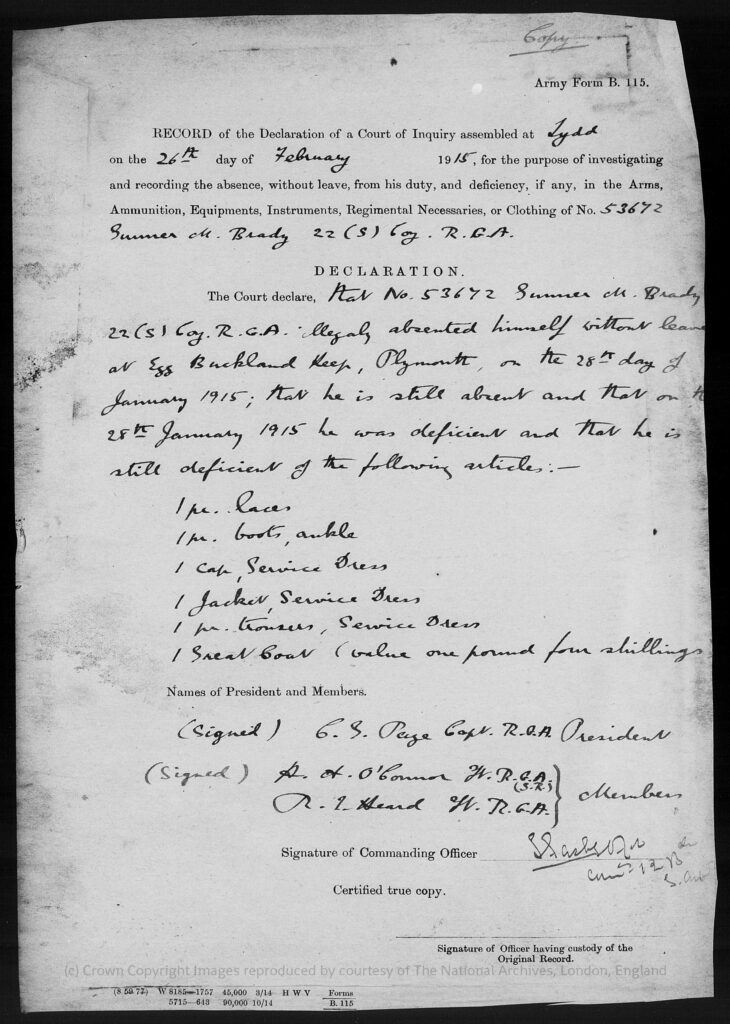 Copy
Army Form B. 115.
RECORD of the Declaration of a Court of Inquiry assembled at Lydd
on the 26th day of February 1915, for the purpose of investigating
and recording the absence, without leave, from his duty, and deficiency, if any, in the Arms,
Ammunition, Equipments, Instruments, Regimental Necessaries, or Clothing of No. 53672
Gunner M. Brady 22 (S) Coy. R.G.A.
DECLARATION.
The Court declare, that No. 53672 Gunner M. Brady
22 (S) Coy. R.G.A. illegally absented himself without leave
at Egg Buckland Keep, Plymouth, on the 28th day of
January 1915; that he is still absent and that on
28th January 1915 he was deficient and that he is
still deficient of the following articles:—
1 pr. laces
1 pr. boots, ankle
1 cap, Service Dress
1 Jacket, Service Dress
1 pr. trousers, Service Dress
1 Great Coat (value one pound four shillings
Names of President and Members.
(Signed) C. Page Capt. R.G.A. President
(Signed) H. O'Connor Lt. R.G.A. (S.R.)
R. Heard Lt. R.G.A. } Members
Signature of Commanding Officer
Certified true copy.
Signature of Officer having custody of the
Original Record.
(c) Crown Copyright Images reproduced by courtesy of The National Archives, London, England
(8 59 77) W 8185—1757 45,000 3/14 H W V Forms
5715—643 90,000 10/14 B. 115